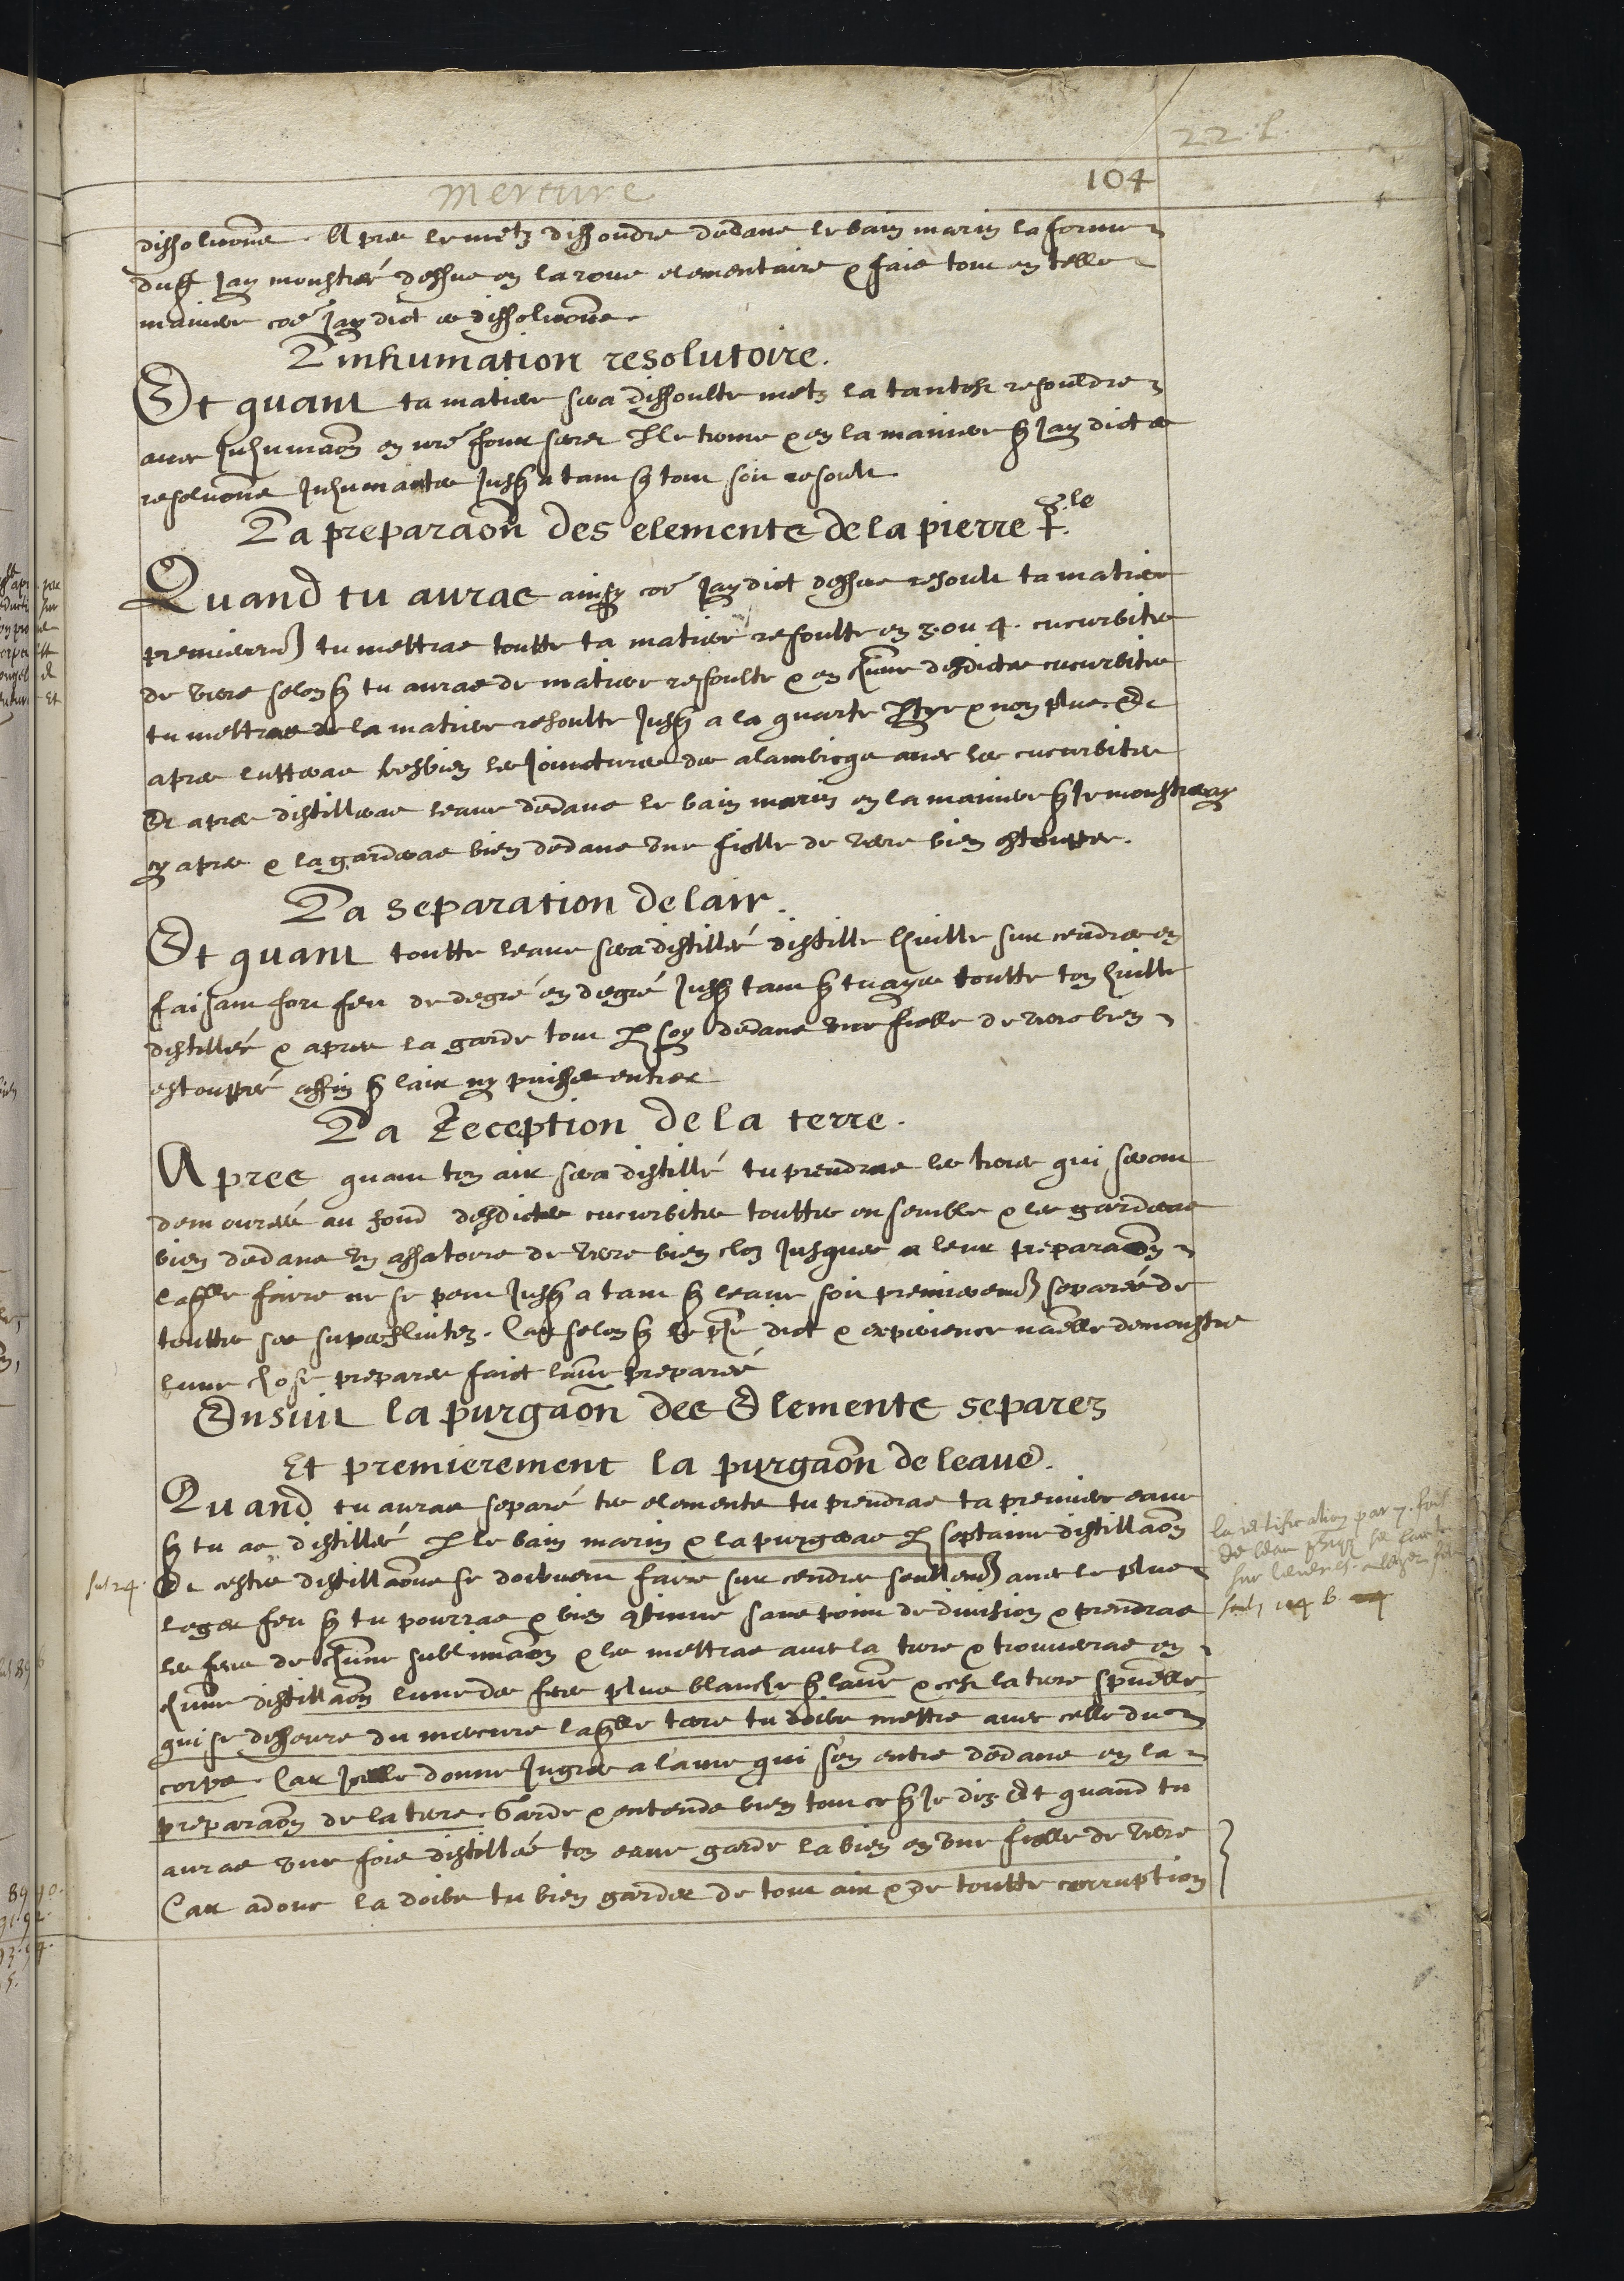 22. l.
104
mercure
dissoluc̃ons. Apres le metz dissoudre dedans le bain marin la forme
duq̃l Jay monstreé dessus en la roue elementaire & fais tout en telle
maniere cõe Jay dict es dissoluc̃ons.
Linhumation resolutoire.
Et quant ta matiere sera dissoulte metz la tantost resouldre
avec Inhumac̃on en nr̃e four secret & en la maniere q̃ Jay dict es
resoluc̃ons Inhumantes Jusq̃ a tant q̃ tout soit resoult.
La preparac̃on des elements de la pierre
Quand tu auras ainsy cõe Jay dict dessus resoult ta matiere
premierem̃t tu mettras toutte ta matiere resoulte en 3. ou 4. cucurbites
de verre selon q̃ tu auras de matiere resoulte & en chũne desdictes cucurbites
tu mettras de la matiere resoulte Jusq̃ a la quarte ptye & non plus. Et
apres lutteras tresbien les Joinctures des alambicqs avec les cucurbites
Et apres distilleras leaue dedans le bain marin en la maniere q̃ Je monstreray
cy apres & la garderas bien dedans une fiolle de verre bien estouppee.
La separation de lair.
Et quant toutte leaue sera distilleé distille lhuille sur cendres en
faisant fort feu de degré en degré Jusq̃ tant q̃ tu ayes toutte ton huille
distilleé & apres la garde tout p soy dedans une fiolle de verre bien
estouppeé affin q̃ lair ny puisse entrer
La Reception de la terre.
Apres quant ton air sera distillé tu prendras les terres qui seront
demoureés au fond desdictes cucurbites touttes ensemble & les garderas
bien dedans un assatoire de verre bien clos Jusques a leur preparac̃on
laq̃lle faire ne se peut Jusq̃ a tant q̃ leaue soit premierem̃t separeé de
touttes ses superfluitez. Car selon q̃ le phẽ dict & experience nãelle demonstre
lune chose preparee faict lau͠e prepareé
Ensuit la purgac̃on des Elements separez
Et premierement la purgac̃on de leaue.
Quand tu auras separé tes elements tu prendras ta premiere eaue
q̃ tu as distilleé p le bain marin & la purgeras p septaine distillac̃on
Et cestes distillac̃ons se doibvent faire sur cendres seullem̃t avec le plus
leger feu q̃ tu pourras & bien ꝯtinue sans point de division & prendras
les feces de chũne sublimac̃on & les mettras avec la terre & trouveras en
chũne distillac̃on lune des feces plus blanche q̃ lau͠e & cest la terre spũelle
qui se dessevre du mercure laq̃lle terre tu doibs mettre avec celle du
corps. Car Jcelle donne Jngres a lame qui sen entre dedans en la
preparac̃on de la terre. Garde & entends bien tout ce q̃ Je dis. Et quand tu
auras une fois distilleé ton eaue garde la bien en une fiolle de verre
Car adonc la doibs tu bien garder de tout air & de toutte corruption
la rectification par 7. fois
de leau
fol 24.